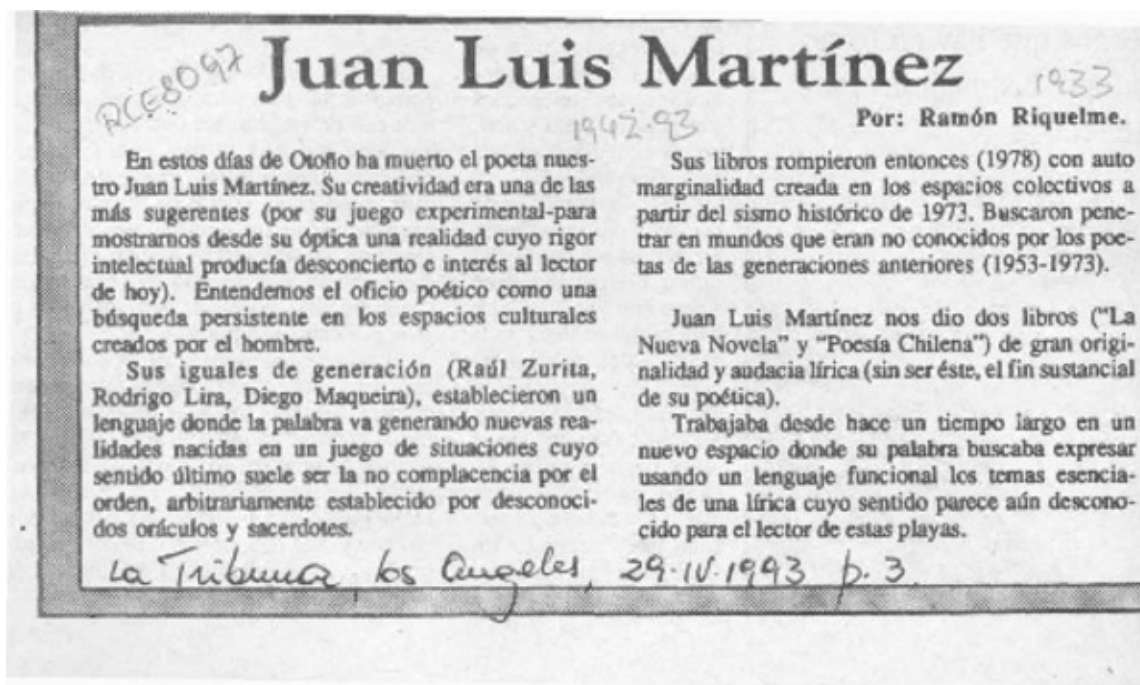 Juan Luis Martínez
RCE8097
1942-93
1933
Por: Ramón Riquelme.
En estos días de Otoño ha muerto el poeta nues-
tro Juan Luis Martínez. Su creatividad era una de las
más sugerentes (por su juego experimental-para
mostrarnos desde su óptica una realidad cuyo rigor
intelectual producía desconcierto e interés al lector
de hoy). Entendemos el oficio poético como una
búsqueda persistente en los espacios culturales
creados por el hombre.
Sus iguales de generación (Raúl Zurita,
Rodrigo Lira, Diego Maqueira), establecieron un
lenguaje donde la palabra va generando nuevas rea-
lidades nacidas en un juego de situaciones cuyo
sentido último suele ser la no complacencia por el
orden, arbitrariamente establecido por desconoci-
dos oráculos y sacerdotes.
Sus libros rompieron entonces (1978) con auto
marginalidad creada en los espacios colectivos a
partir del sismo histórico de 1973. Buscaron pene-
trar en mundos que eran no conocidos por los poe-
tas de las generaciones anteriores (1953-1973).
Juan Luis Martínez nos dio dos libros ("La
Nueva Novela" y "Poesía Chilena") de gran origi-
nalidad y audacia lírica (sin ser éste, el fin sustancial
de su poética).
Trabajaba desde hace un tiempo largo en un
nuevo espacio donde su palabra buscaba expresar
usando un lenguaje funcional los temas esencia-
les de una lírica cuyo sentido parece aún descono-
cido para el lector de estas playas.
La Tribuna, Los Angeles, 29-IV-1993 p. 3